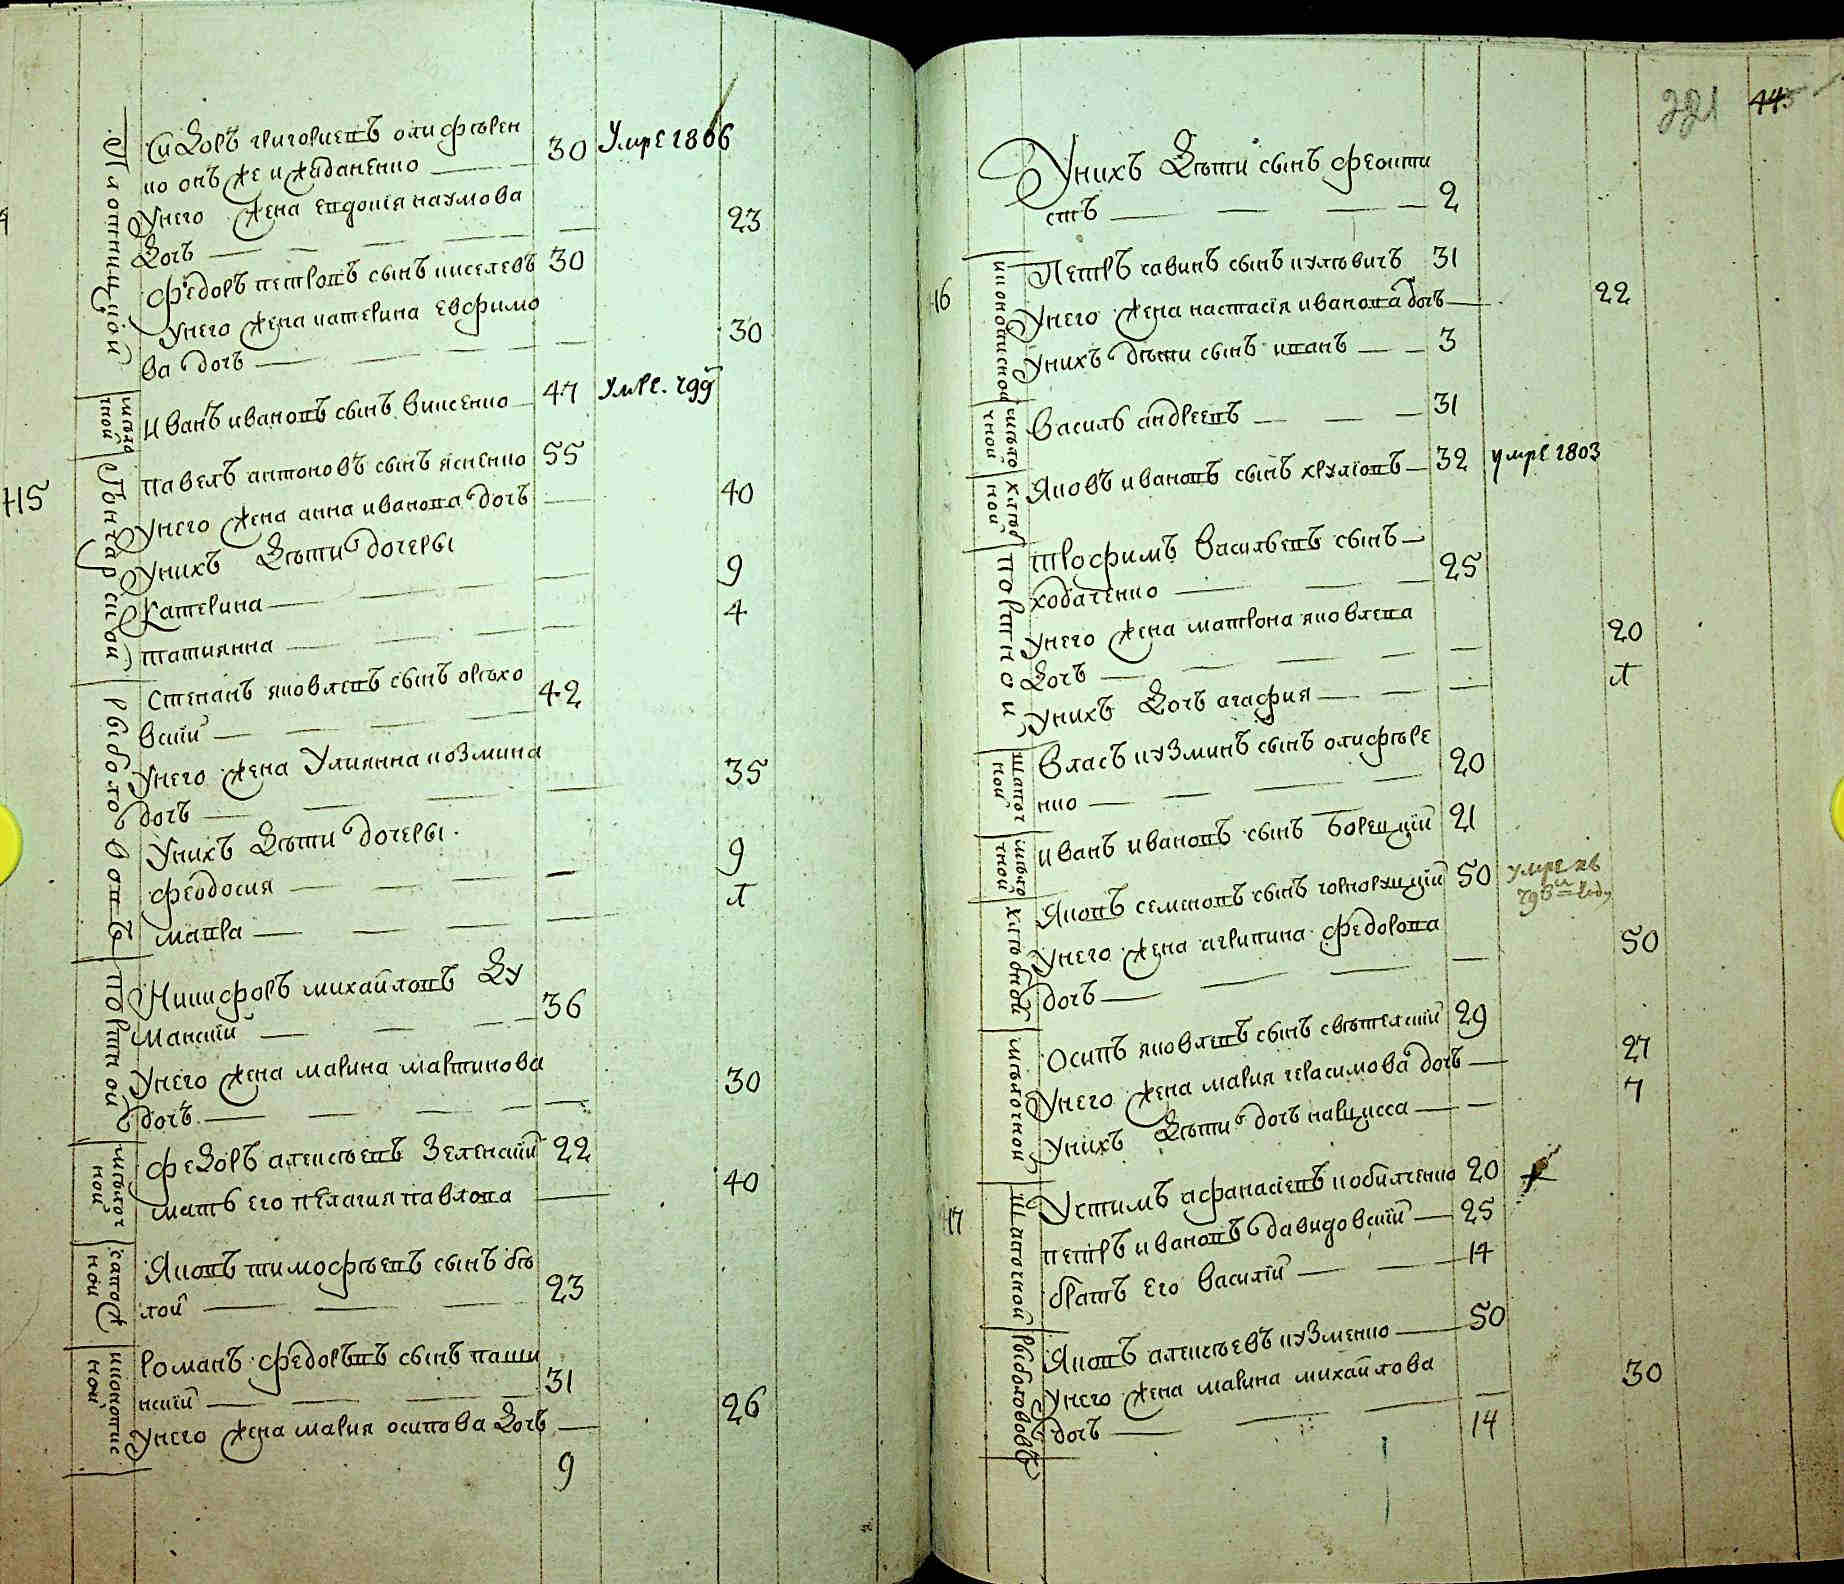 Плотницкой
Сидоръ григориевъ олифѣрен
ко онъ же и жданенко 30 Умре 1806
Унего жена евдокія наумова 23
дочъ
федоръ петровъ сынъ киселевъ 30
Унего жена катерина евфимо
ва дочъ 30
мѣло
чной
Иванъ ивановъ сынъ виксенко 47 Умре. 799
415
Бондарской
павелъ антоновъ сынъ ясненко 55
Унего жена анна иванова дочъ 40
Унихъ дѣти дочеры
Катерина 9
татиянна 4
рыболововъ
степанъ яковлевъ сынъ орѣхо
вскій 42
Унего жена Улиянна козмина
дочъ 35
Унихъ дѣти дочеры.
феодосия 9
мавра л
портной
Никифоръ михайловъ ду
манскій 36
Унего жена марина мартинова
дочъ 30
мѣлоч
ной
федоръ алексѣевъ Зеленскій 22
мать его пелагия павлова 40
сапож
ной
Яковъ тимофѣевъ сынъ бѣ
лой 23
иконопис
ной
романъ федоръвъ сынъ паши
нскій 31
Унего жена мария осипова дочъ 26
9
221 443
Унихъ дѣти сынъ феокти
стъ 2
416
иконописной
Петръ савинъ сынъ куловичъ 31
Унего жена настасія иванова дочъ 22
Унихъ дѣти сынъ иванъ 3
мѣло
чной
Василъ андреевъ 31
хлѣб
ной
Яковъ ивановъ сынъ хруліовъ 32 умре 1803
портной
трофимъ василъевъ сынъ
ходаченко 25
Унего жена матрона яковлева
дочъ 20
Унихъ дочъ агафия л
шапоч
ной
Власъ кузминъ сынъ олифѣре
нко 20
мѣло
чной
иванъ ивановъ сынъ борецкій 21
хлѣбной
Яковъ семеновъ сынъ чорноруцкій 50 умре въ
798м год
Унего жена агрипина федорова
дочъ 50
мѣлочной
Осипъ яковлевъ сынъ свѣтелскій 29
Унего жена мария герасимова дочъ 27
Унихъ дѣти дочъ наркисса 7
417
шапочной
Устимъ афанасіевъ кобилченко 20
петръ ивановъ давидовскій 25
братъ его василій 14
рыболововъ
Яковъ алексѣевъ кузменко 50
Унего жена марина михайлова
дочъ 30
14